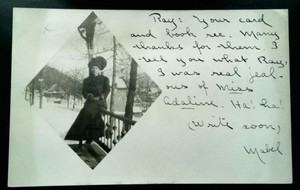 Ray: Your card
and book rec. Many
thanks for them. I
tell you what Ray,
I was real jeal-
ous of Miss
Adaline. Ha! ha!
(Write soon)
Mabel.